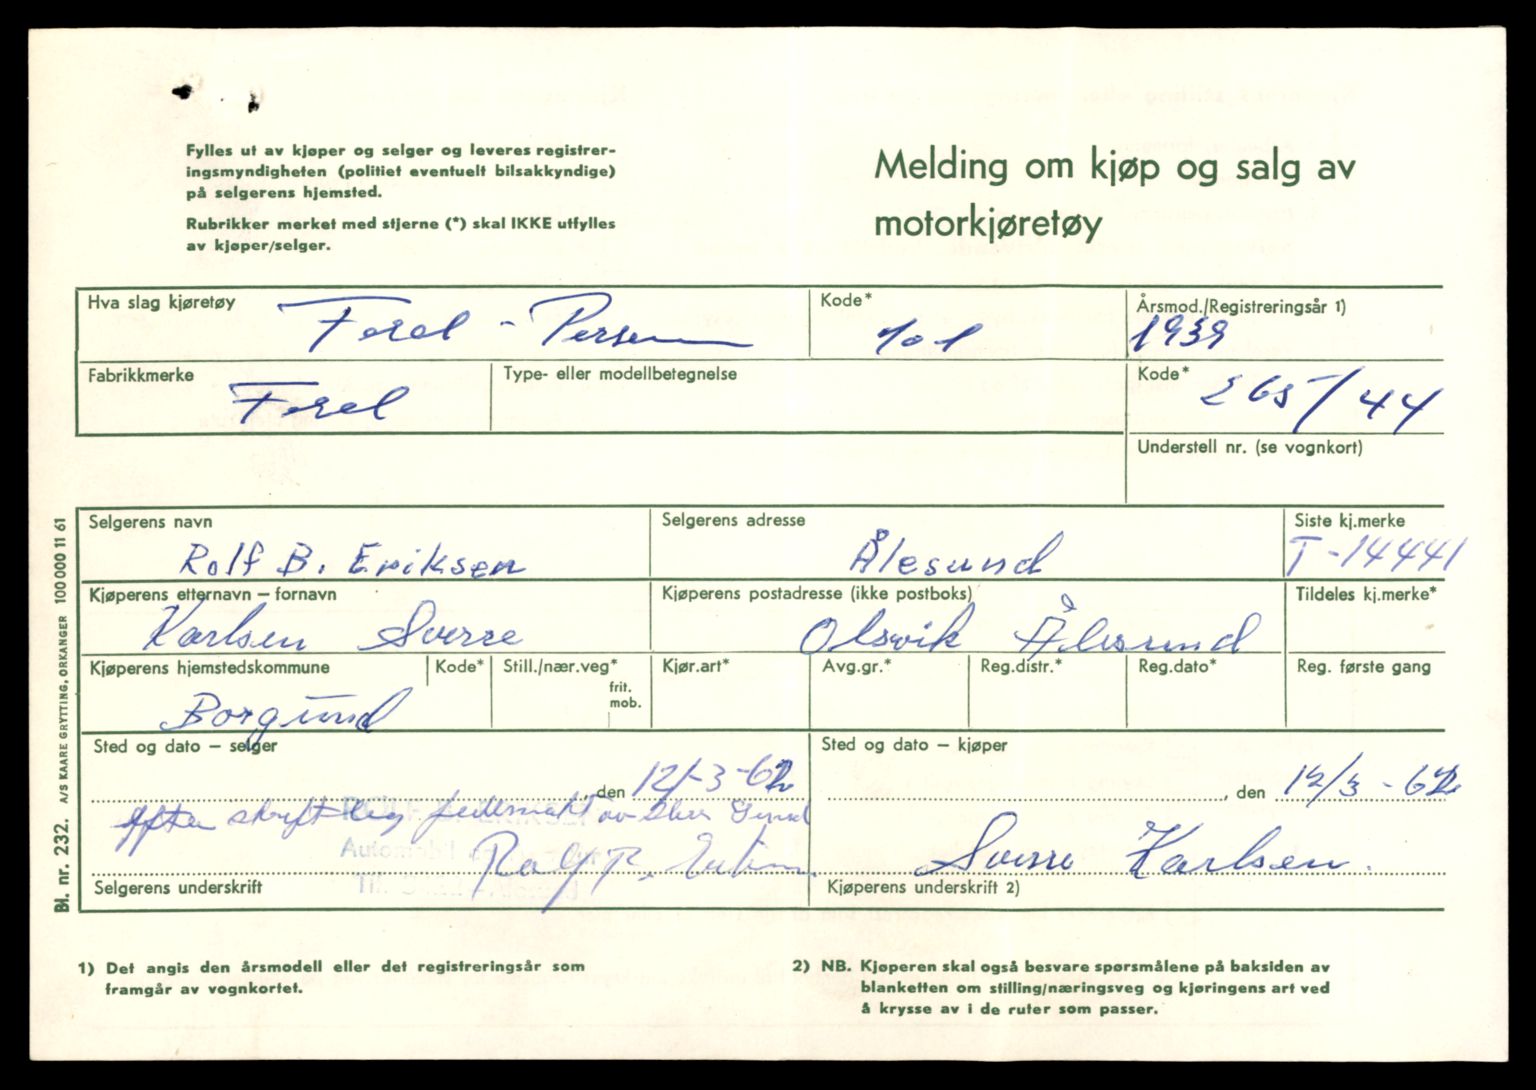 Fylles ut av kjøper og selger og leveres registrer-
ingsmyndigheten (politiet eventuelt bilsakkyndige)
på selgerens hjemsted.
Rubrikker merket med stjerne (*) skal IKKE utfylles
av kjøper/selger.
Melding om kjøp og salg av
motorkjøretøy
Hva slag kjøretøy
Kode*
Årsmod./Registreringsår 1)
101
1939
Fabrikkmerke
Type- eller modellbetegnelse
Kode*
265/44
Understell nr. (se vognkort)
Selgerens navn
Selgerens adresse
Siste kj.merke
Rolf B. Eriksen
Ålesund
T-14441
Kjøperens etternavn – fornavn
Kjøperens postadresse (ikke postboks)
Tildeles kj.merke*
Karlsen Sverre
Olsvik Ålesund
Kjøperens hjemstedskommune
Kode*
Still./nær.veg*
frit.
mob.
Kjør.art*
Avg.gr.*
Reg.distr.*
Reg.dato*
Reg. første gang
Borgund
Sted og dato – selger
Sted og dato – kjøper
, den 12/-3-62
, den 12/3-62
Efter skriftleg
Sverre Karlsen.
Selgerens underskrift
Kjøperens underskrift 2)
1) Det angis den årsmodell eller det registreringsår som
framgår av vognkortet.
2) NB. Kjøperen skal også besvare spørsmålene på baksiden av
blanketten om stilling/næringsveg og kjøringens art ved
å krysse av i de ruter som passer.
Bl. nr. 232. A/S KAARE GRYTTING, ORKANGER 100 000 11 61